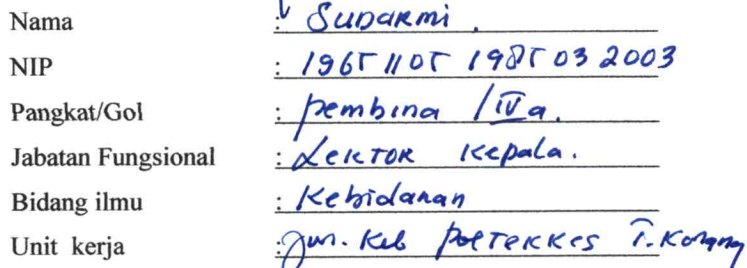 Nama : Sudarmi.
NIP : 19651105 198503 2003
Pangkat/Gol : Pembina /IVa.
Jabatan Fungsional : Lektor Kepala.
Bidang ilmu : Kebidanan
Unit kerja : Jur. Keb Poltekkes T. Karang